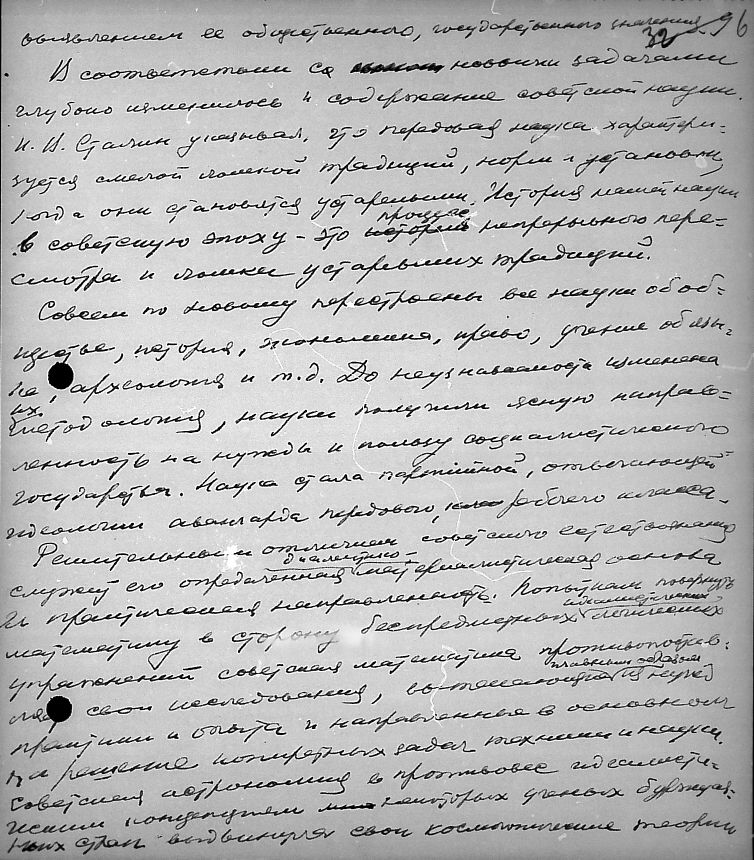 96
32
выявлением ее общественного, государственного значения.
В соответствии с новыми задачами
глубоко изменилось и содержание советской науки.
И. В. Сталин указывал, что передовая наука характери-
зуется смелой ломкой традиций, норм и установок,
когда они становятся устарелыми. История нашей науки
в советскую эпоху – это процесс непрерывного пере-
смотра и ломки устаревших традиций.
Совсем по новому перестроены все науки об об-
ществе, история, экономика, право, учение об язы-
ке, археология и т.д. До неузнаваемости изменена
их методология, науки получили ясную направ-
ленность на нужды и пользу социалистического
государства. Наука стала партийной, отвечающей
идеологии авангарда передового, рабочего класса.
Решительным отличием советского естествознания
служит его определенная диалектико-материалистическая основа
и практическая направленность. Попыткам повернуть
математику в сторону беспредметных идеалистических логических
упражнений советская математика противопостав-
ляет свои исследования, вытекающие главным образом из нужд
практики и опыта и направленные в основном
на решение конкретных задач техники и науки.
Советская астрономия в противовес идеалисти-
ческим концепциям некоторых ученых буржуаз-
ных стран выдвинула свои космогонические теории